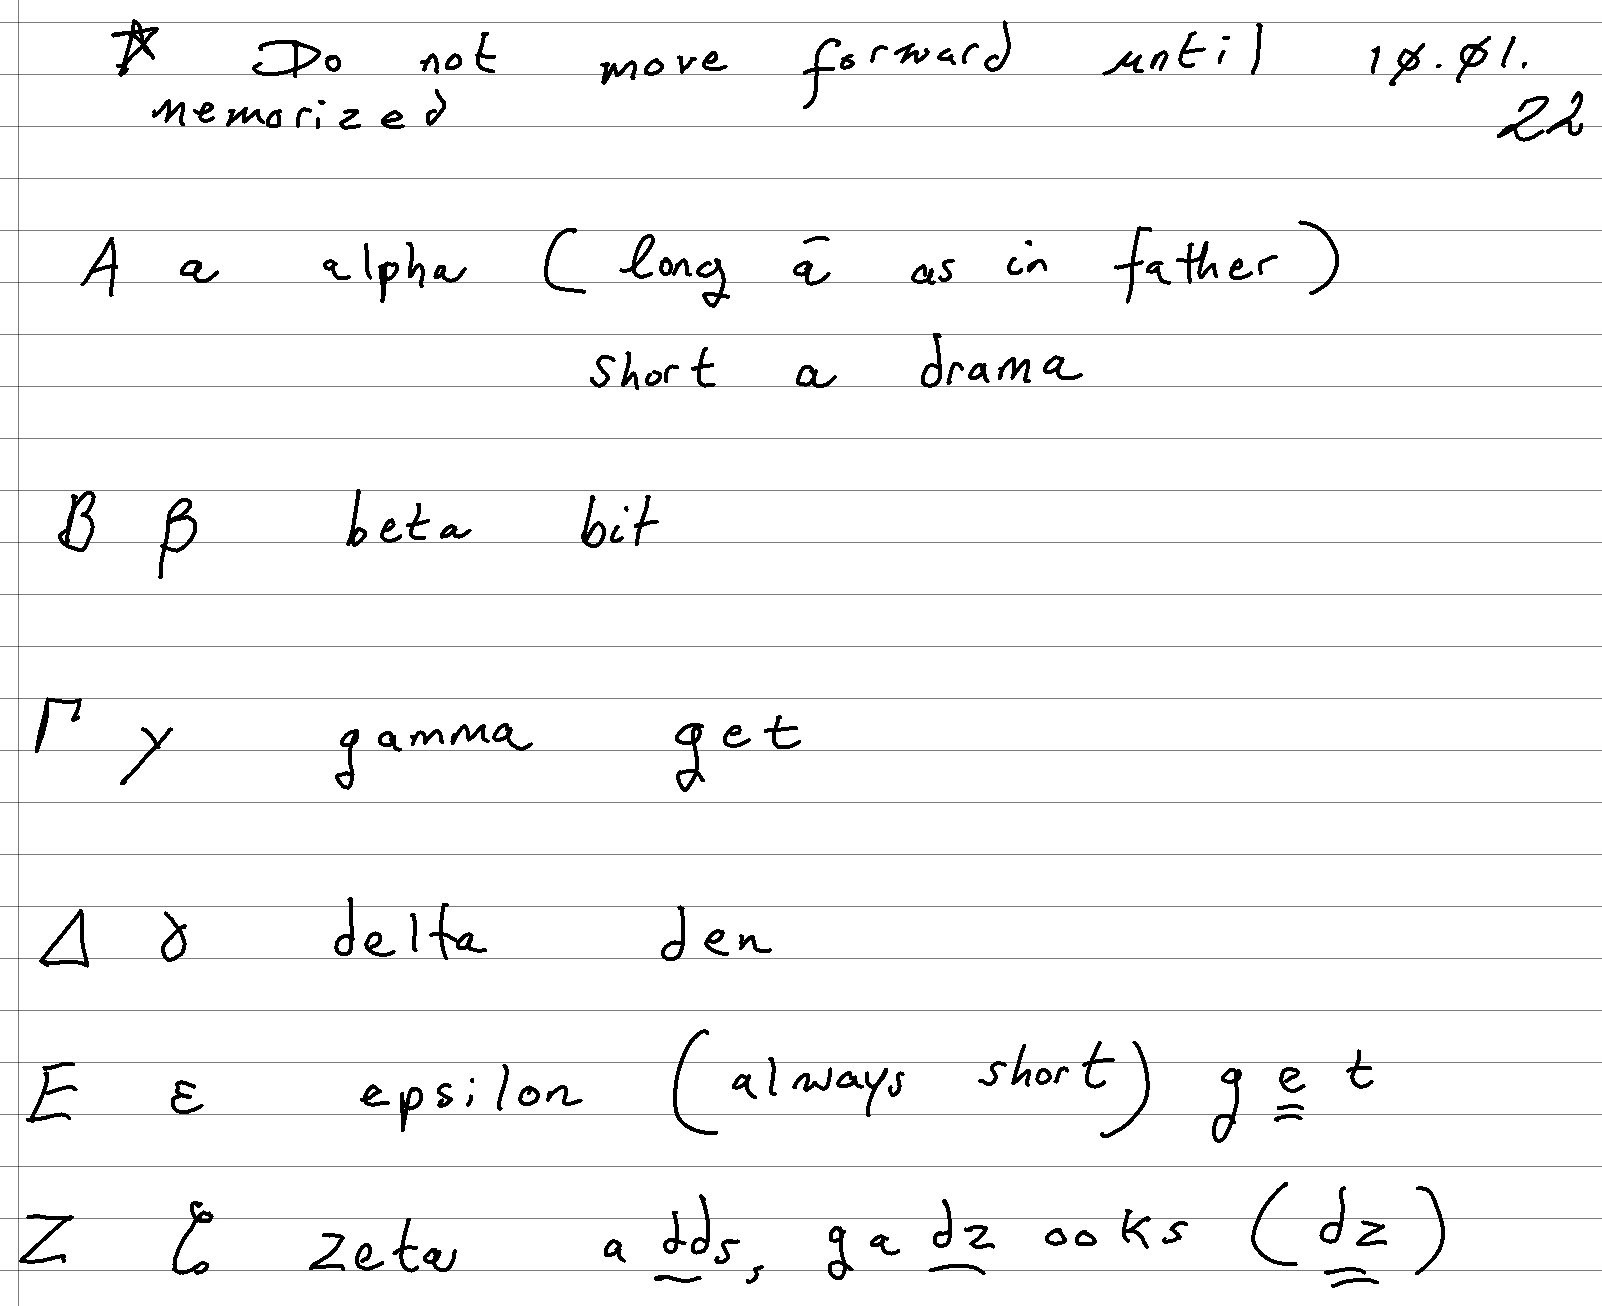 ☆ Do not move forward until 10.01.
memorized 22
A a alpha (long ā as in father)
short a drama
B β beta bit
Γ γ gamma get
Δ δ delta den
E ε epsilon (always short) get
Z ζ zeta adds, gadzooks (dz)